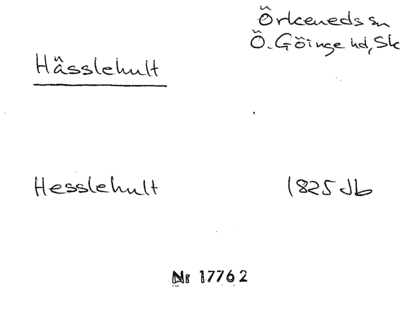 Örkeneds sn
Ö. Göinge hd, Sk
Hässlehult
Hesslehult 1825 Jb
Nr 17762